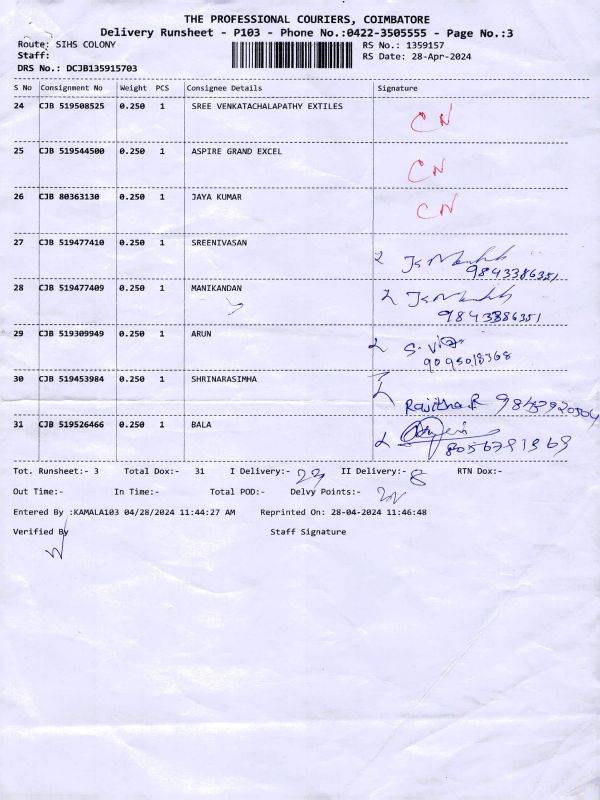 THE PROFESSIONAL COURIERS, COIMBATORE
Delivery Runsheet - P103 - Phone No.:0422-3505555 - Page No.:3
Route: SIHS COLONY RS No.: 1359157
Staff: RS Date: 28-Apr-2024
DRS No.: DCJB135915703
S No Consignment No Weight PCS Consignee Details Signature
24 CJB 519508525 0.250 1 SREE VENKATACHALAPATHY EXTILES CN
25 CJB 519544500 0.250 1 ASPIRE GRAND EXCEL CN
26 CJB 80363130 0.250 1 JAYA KUMAR CN
27 CJB 519477410 0.250 1 SREENIVASAN
9843386351
28 CJB 519477409 0.250 1 MANIKANDAN
9843386351
29 CJB 519309949 0.250 1 ARUN
9095018368
30 CJB 519453984 0.250 1 SHRINARASIMHA
Rajitha R
31 CJB 519526466 0.250 1 BALA
Tot. Runsheet:- 3 Total Dox:- 31 I Delivery:- 23 II Delivery:- 8 RTN Dox:-
Out Time:- In Time:- Total POD:- Delvy Points:-
Entered By :KAMALA103 04/28/2024 11:44:27 AM Reprinted On: 28-04-2024 11:46:48
Verified By Staff Signature